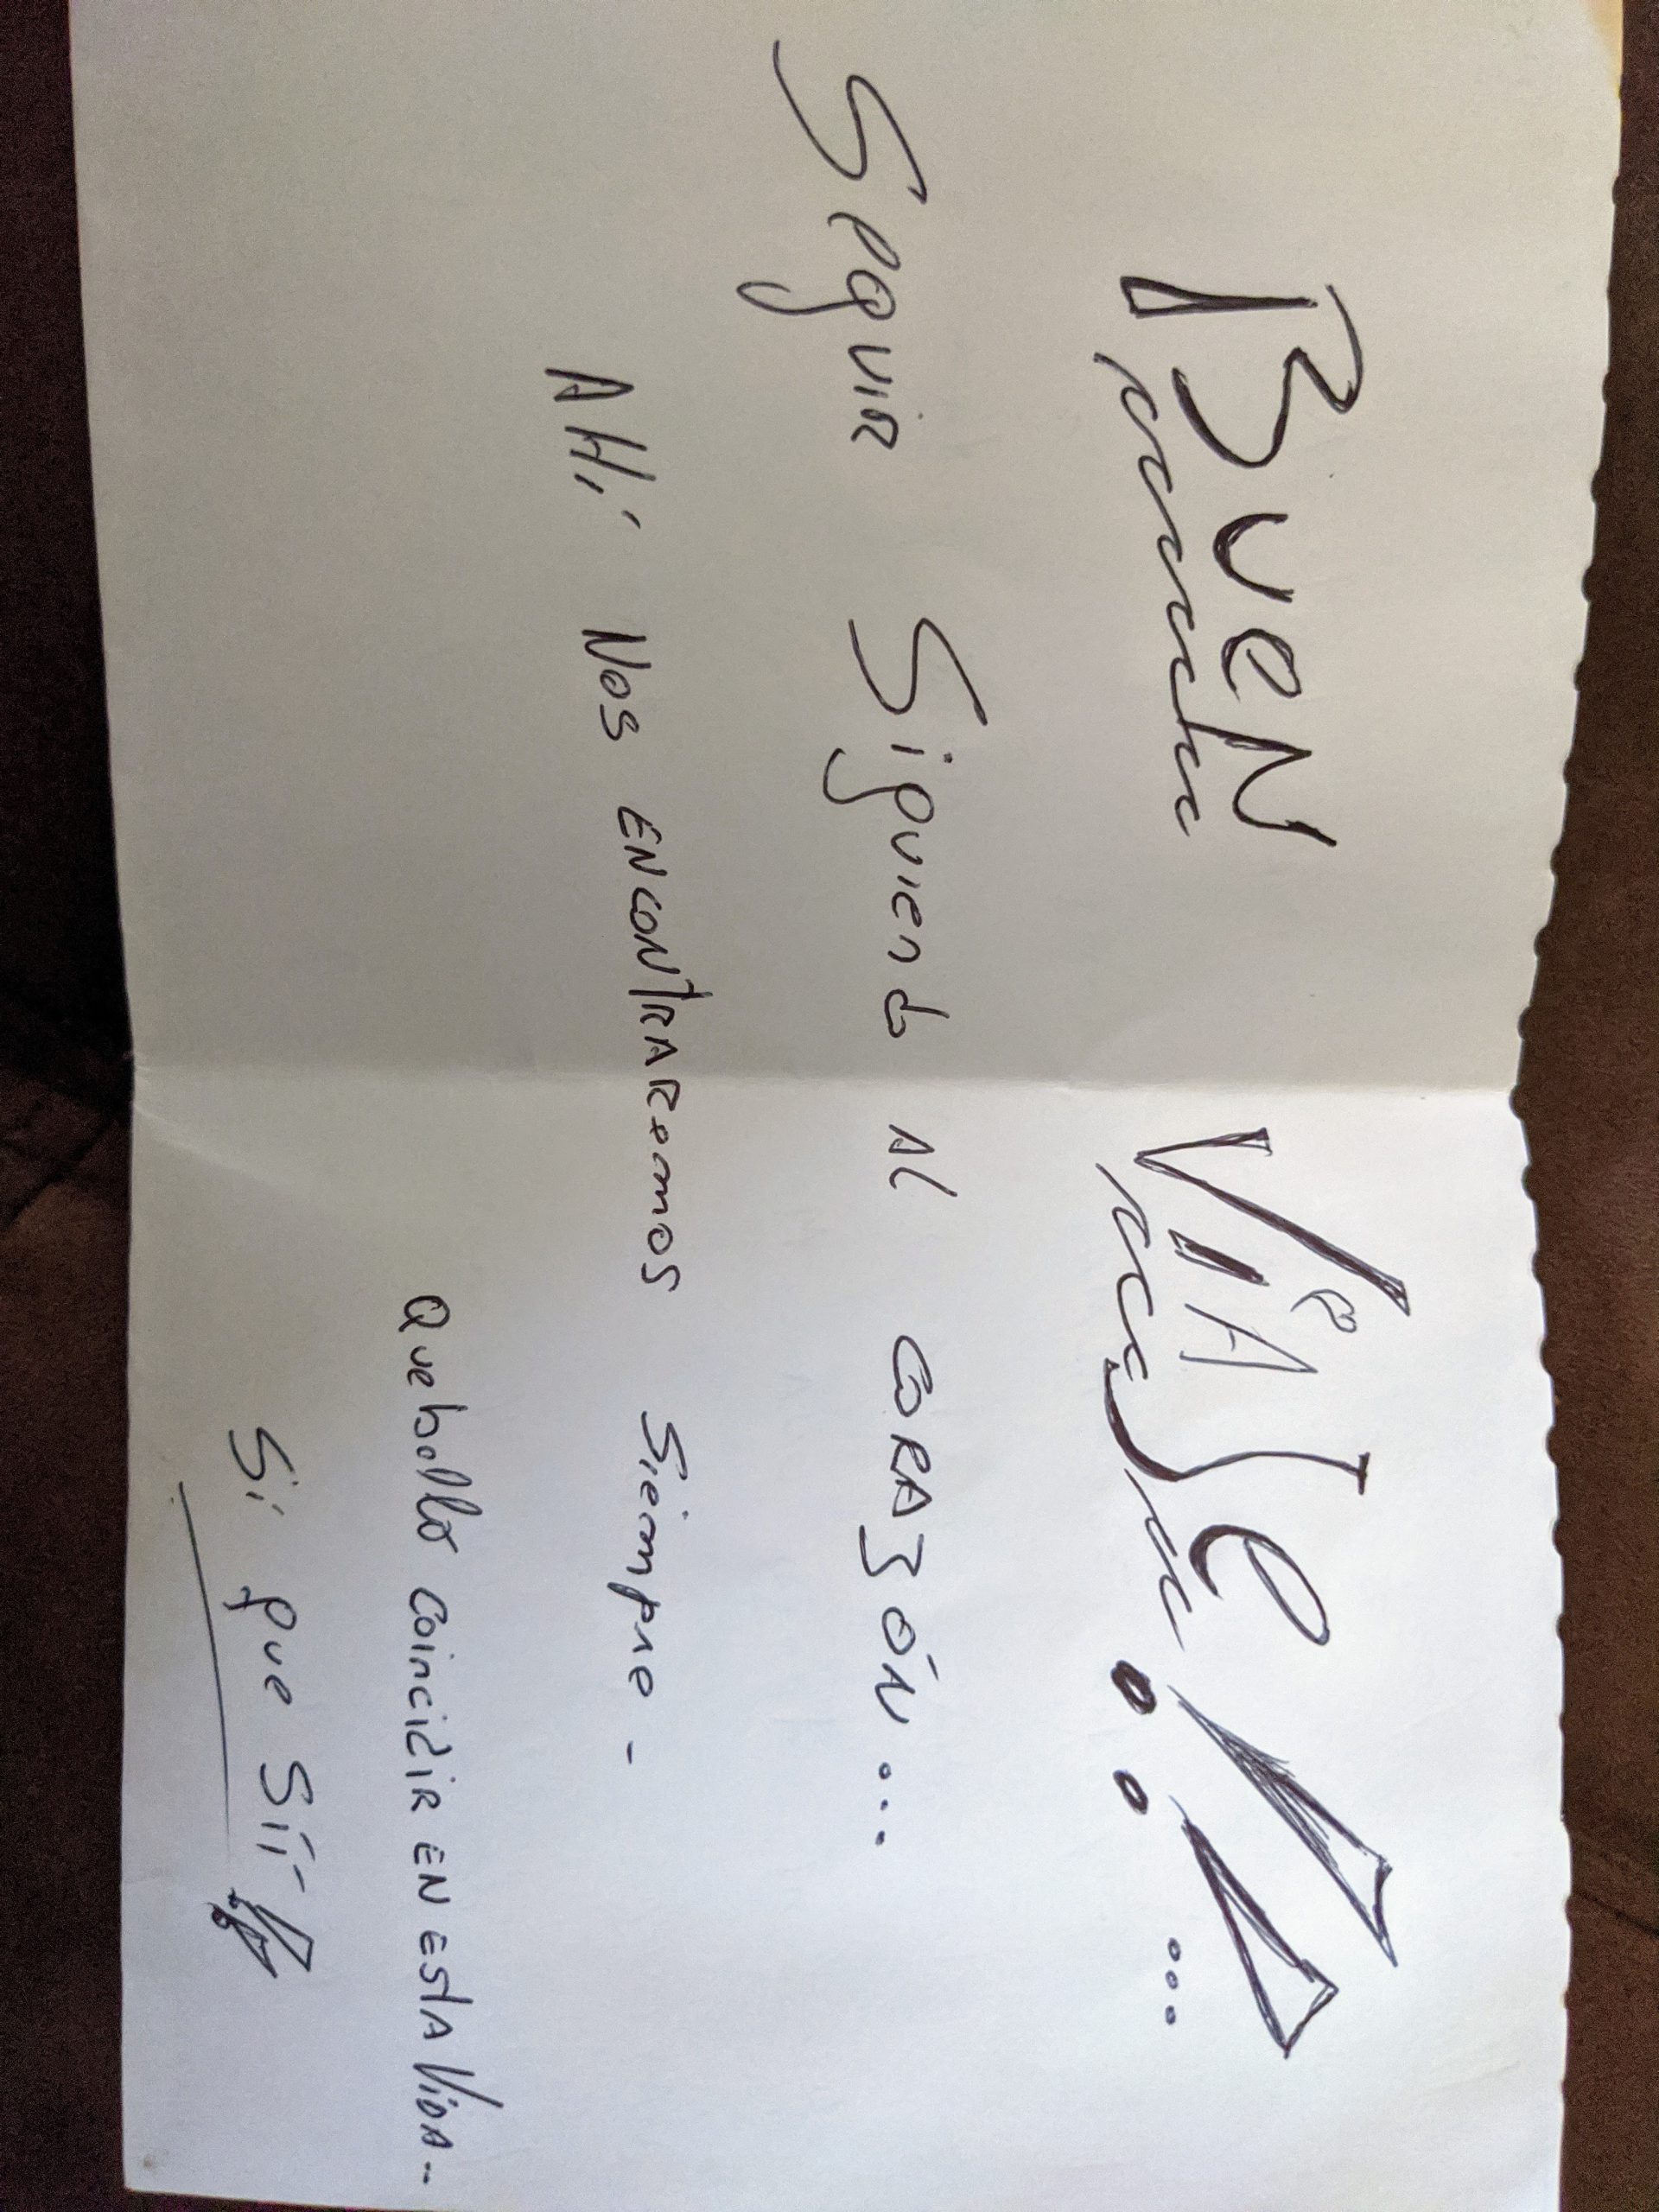 BueN ViAJe!! ...
Seguir Siguiendo Al CORAZÓN...
AHí Nos ENCONTRARemos Siempre -
Que bello coincidir EN ESTA ViDA..
Sí que Síí!